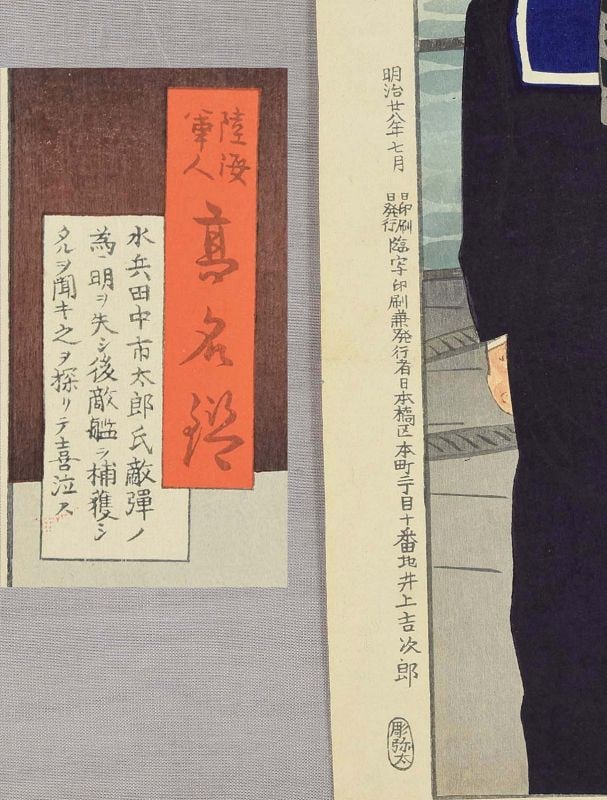 陸海
軍人
高名鑑
水兵田中市太郎氏敵彈ノ
為明ヲ失シ後敵艦ヲ捕獲シ
タルヲ聞キ之ヲ探リテ喜泣ス
明治廿八年七月
日印刷
日発行
臨写印刷兼発行者日本橋区本町三丁目十番地井上吉次郎
彫弥太